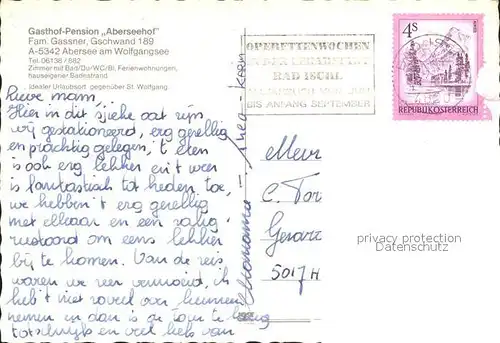 Gasthof-Pension „Aberseehof"
Fam. Gassner, Gschwand 189
A-5342 Abersee am Wolfgangsee
Tel. 06138 / 682
Zimmer mit Bad/Du/WC/Bl, Ferienwohnungen,
hauseigener Badestrand.
Idealer Urlaubsort gegenüber St. Wolfgang.
OPERETTENWOCHEN
BAD ISCHL
BIS ANFANG SEPTEMBER
4S
REPUBLIK ÖSTERREICH
Lieve mam,
Hier in dit sjieke oat zijn
wij gestationeerd, erg gezellig
en prachtig gelegen, 't eten
is ook erg lekker en 't weer
is fantastisch tot heden toe,
we hebben 't erg gezellig
met elkaar en een zalig
rustoord om eens lekker
bij te komen. Van de reis
waren we zeer vermoeid, ik
heb 't niet zoveel
nemen
en veel liefs van
Mevr
C. Tor
5017 H
privacy protection
Datenschutz